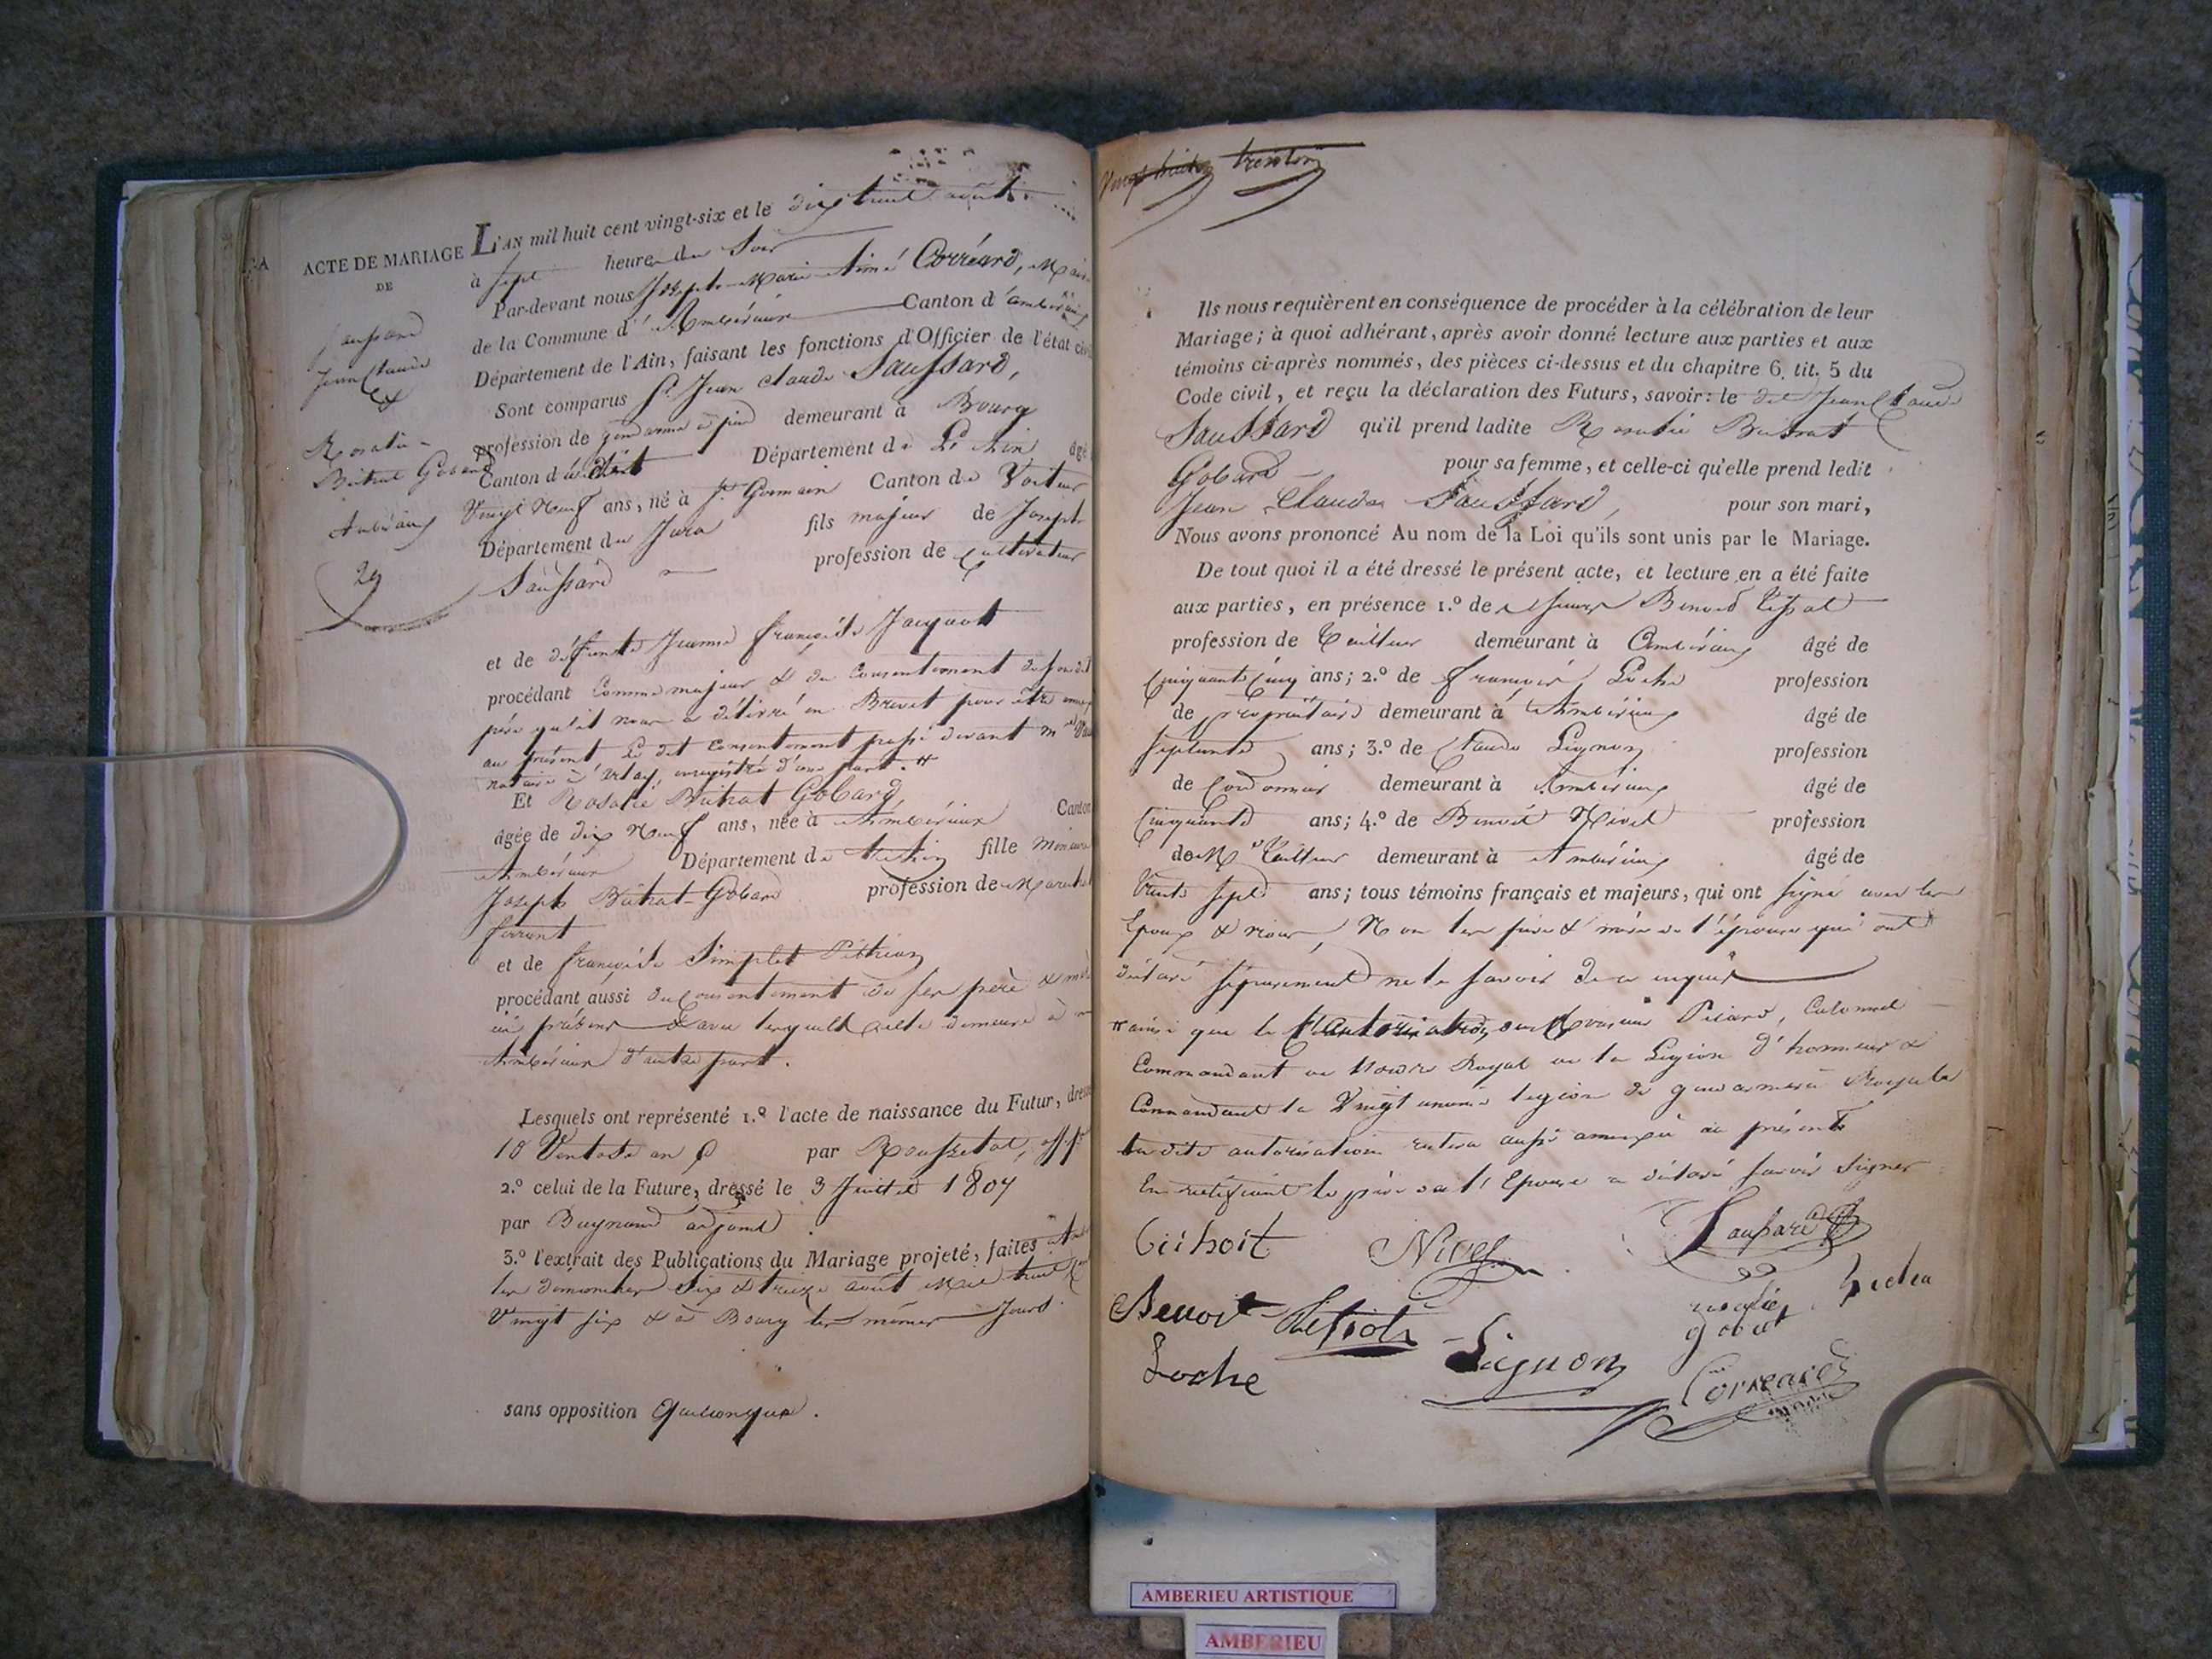 ACTE DE MARIAGE
DE
Jean Claude
&
Rosalie
29
L'AN mil huit cent vingt-six et le dix huit août
à sept heure du Soir
Par-devant nous Joseph Marie Aimé Corréard, Mai
de la Commune d' Ambérieux Canton d'ambérieux
Département de l'Ain, faisant les fonctions d'Officier de l'état civ
Sont comparus Sr. Jean Claude Saussard,
profession de gendarme à pied demeurant à Bourg
Canton du dit Département de L'Ain âgé
Vingt Neuf ans, né à St. Germain Canton de
Département du Jura fils majeur de Joseph
Saussard profession de Cultivateur
et de défunte Jeanne françoise Jacquot
procédant Comme majeur & du Consentement de son dit
père qu'il nous a délivré en Brevet pour être annex
au présent, Le dit Consentement passé devant
notaire à arlay, enregistré d'une part. #
Et Rosalie Butrat Gobard
âgée de dix Neuf ans, née à Ambérieux Canton
Ambérieux Département de L'Ain fille Mineure
Joseph Butrat-Gobard profession de Maréchal
ferrant
et de françoise Simplet
procédant aussi du Consentement de ses père & mère
ici présens & avec lesquels elle demeure à
Ambérieux d'autre part.
Lesquels ont représenté 1.º l'acte de naissance du Futur, dressé
10 Ventose an 5 par Rousselot, off.
2.º celui de la Future, dressé le 3 Juillet 1807
par adjoint
3.º l'extrait des Publications du Mariage projeté, faites
les dimanches Six & treize août Mil huit Cent
Vingt six & à Bourg les mêmes Jours
sans opposition quelconque.
Ils nous requièrent en conséquence de procéder à la célébration de leur
Mariage; à quoi adhérant, après avoir donné lecture aux parties et aux
témoins ci-après nommés, des pièces ci-dessus et du chapitre 6, tit. 5 du
Code civil, et reçu la déclaration des Futurs, savoir: le dit Jean Claude
Saussard qu'il prend ladite Rosalie Butrat
Gobard pour sa femme, et celle-ci qu'elle prend ledit
Jean Claude Saussard, pour son mari,
Nous avons prononcé Au nom de la Loi qu'ils sont unis par le Mariage.
De tout quoi il a été dressé le présent acte, et lecture en a été faite
aux parties, en présence 1.º de Benoit
profession de Tailleur demeurant à Ambérieux âgé de
Cinquante Cinq ans; 2.º de françois Loche profession
de propriétaire demeurant à Ambérieux âgé de
Septante ans; 3.º de Claude Lignon profession
de Cordonnier demeurant à Ambérieux âgé de
Cinquante ans; 4.º de Benoit Nivel profession
de Md. Tailleur demeurant à Ambérieux âgé de
Trente Sept ans; tous témoins français et majeurs, qui ont signé avec les
Epoux & nous, Non les père & mère de l'épouse qui ont
déclaré séparément ne le savoir de ce enquis
# ainsi que de l'autorisation de Monsieur Picard, Colonel
Commandant de l'ordre Royal de la Légion d'honneur &
Commandant la Vingt unième légion de gendarmerie Royale
La dite autorisation restera aussi annexée au présent
En rectifiant le père de l'Epouse a déclaré savoir signer
Nivel
Saussard
Benoit
Loche
Lignon
rosalie
Corréard
AMBERIEU ARTISTIQUE
AMBERIEU